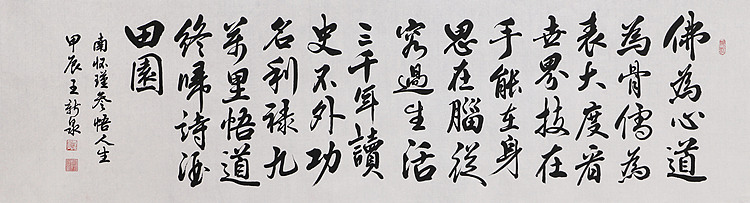 佛為心道
為骨儒為
表大度看
世界技在
手能在身
思在腦從
容過生活
三千年讀
史不外功
名利祿九
萬里悟道
終歸詩酒
田園
南怀瑾參悟人生
甲辰王新泉